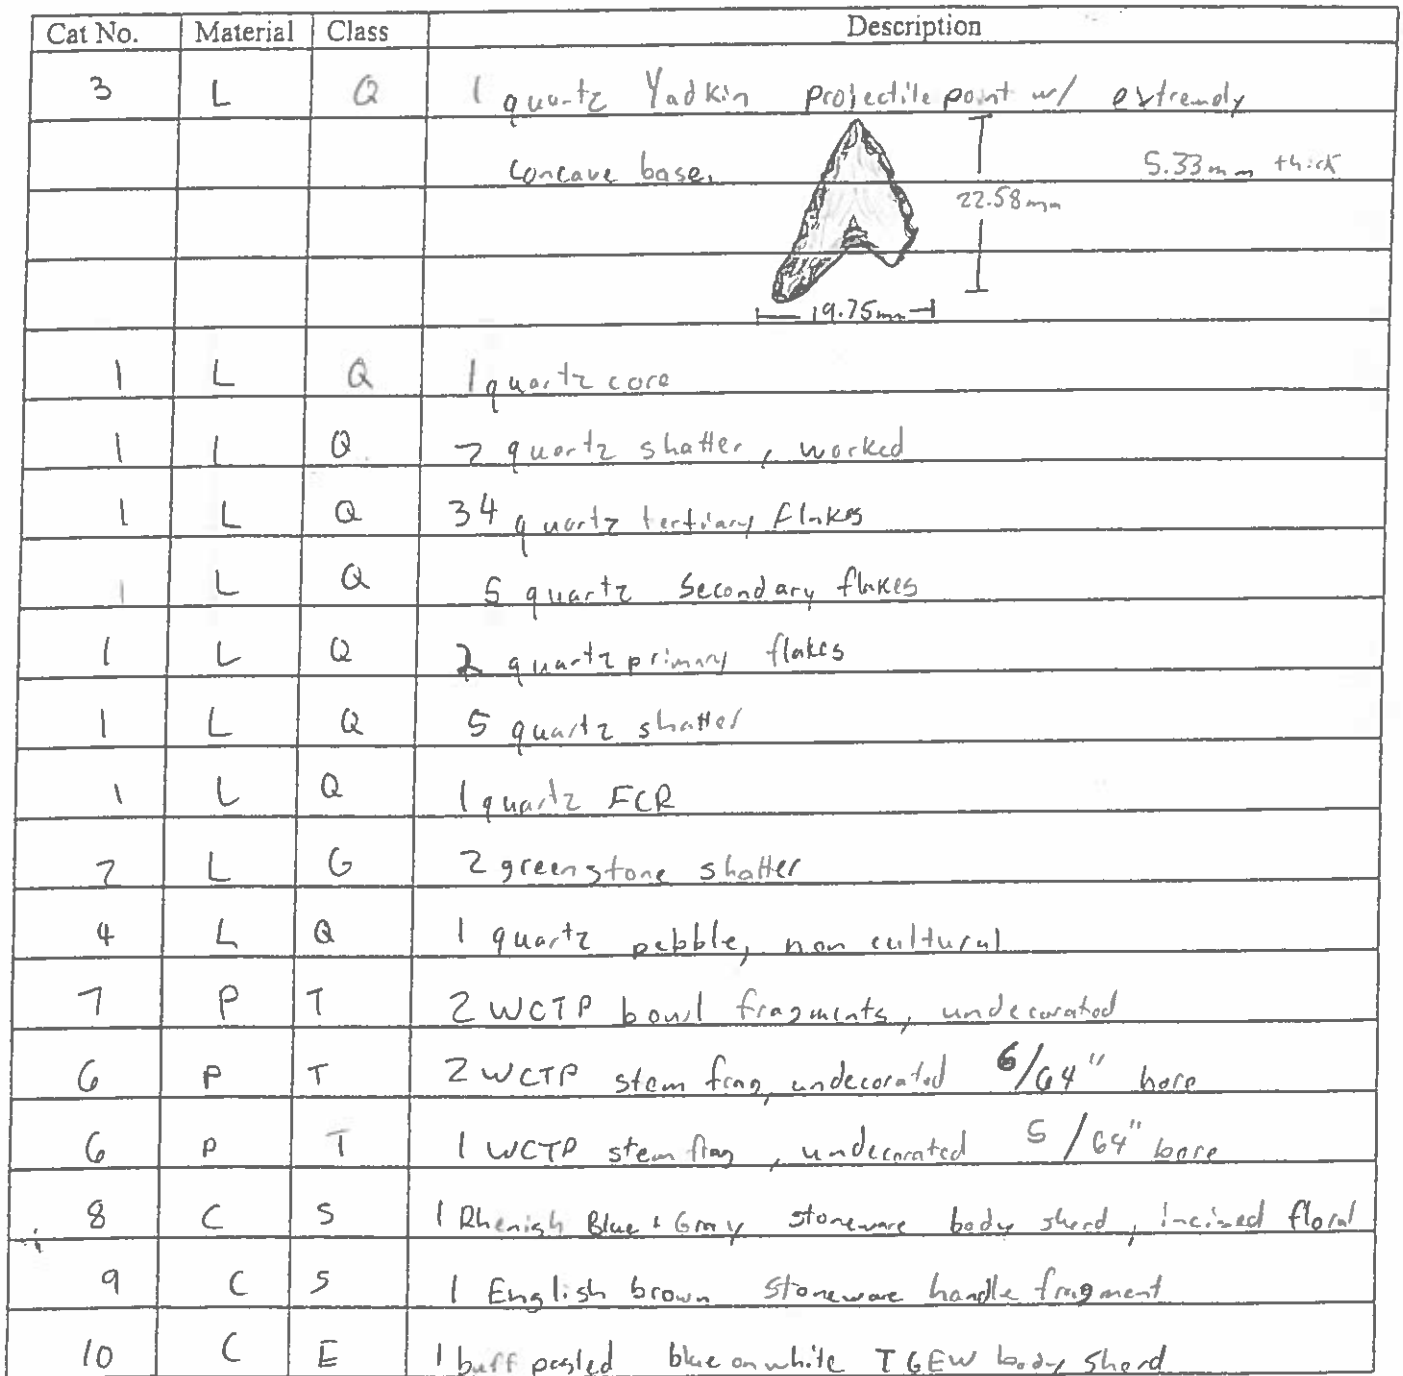 Cat No. Material Class Description
3 L Q 1 quartz Yadkin projectile point w/ extremely
concave base. 5.33mm thick
22.58mm
19.75mm
1 L Q 1 quartz core
1 L Q 2 quartz shatter, worked
1 L Q 34 quartz tertiary flakes
1 L Q 5 quartz secondary flakes
1 L Q 2 quartz primary flakes
1 L Q 5 quartz shatter
1 L Q 1 quartz FCR
2 L G 2 greenstone shatter
4 L Q 1 quartz pebble, non cultural
7 P T 2 WCTP bowl fragments, undecorated
6 P T 2 WCTP stem frag, undecorated 6/64" bore
6 P T 1 WCTP stem frag, undecorated 5/64" bore
8 C S 1 Rhenish Blue + Gray stoneware body sherd, incised floral
9 C S 1 English brown stoneware handle fragment
10 C E 1 buff pasted blue on white TGEW body sherd